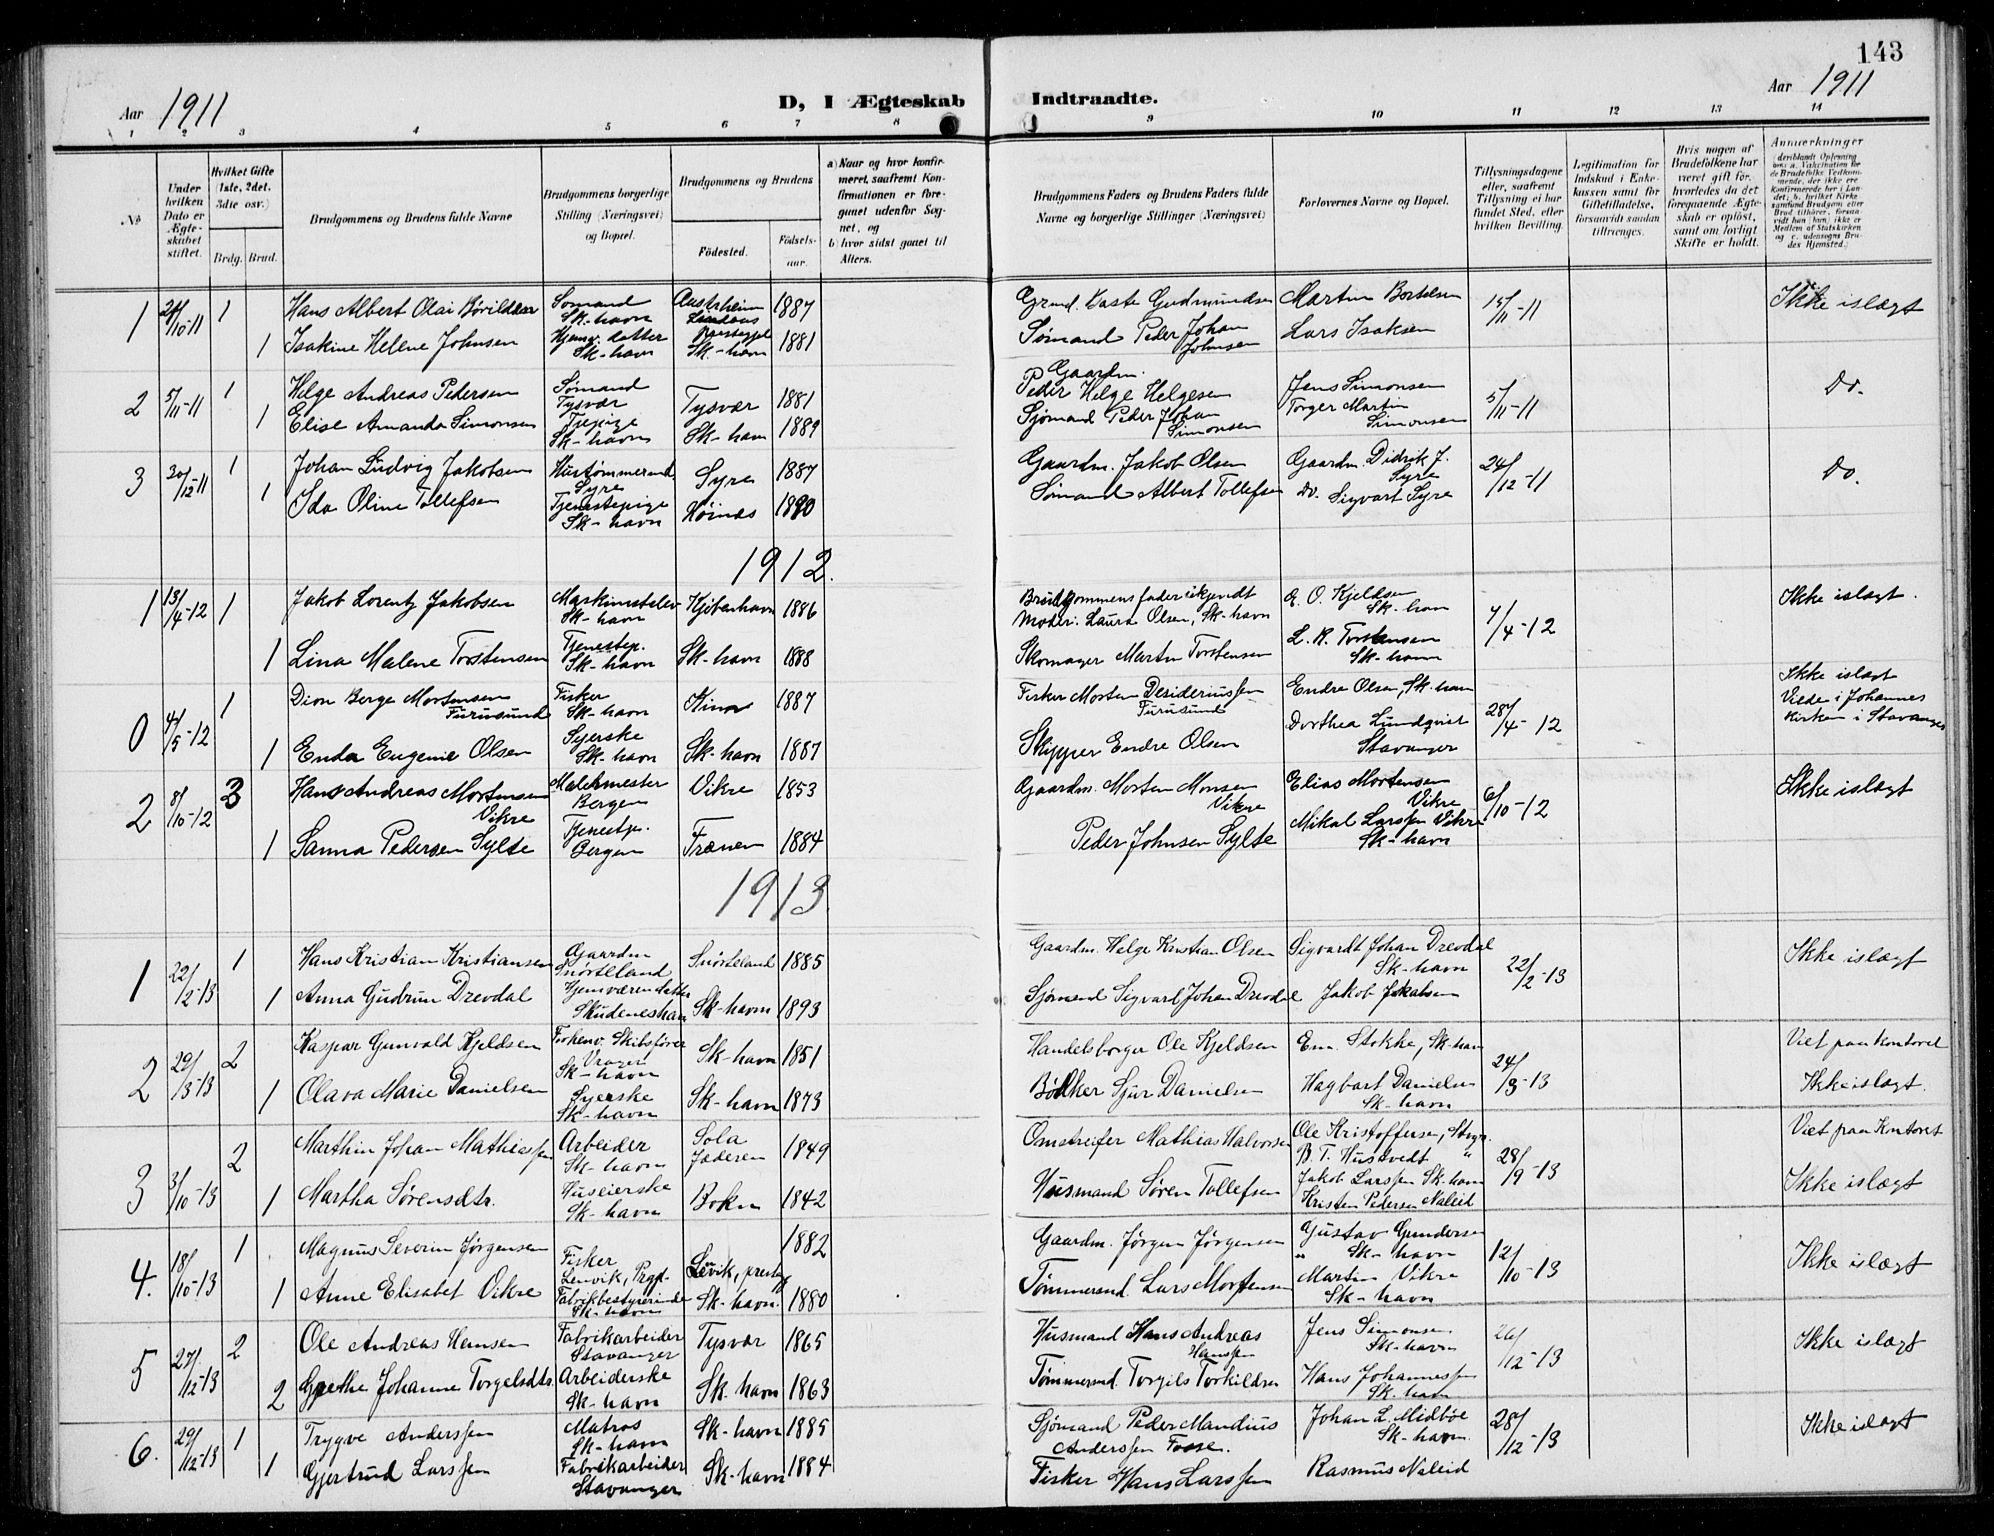 143
Aar 1911
D, I Ægteskab Indtraadte.
Aar 1911
1 2 3 4 5 6 7 8 9 10 11 12 13 14
No
Under hvilken Dato er Ægteskabet stiftet.
Hvilket Gifte (1ste, 2det, 3die osv.)
Brdg. Brud.
Brudgommens og Brudens fulde Navne
Brudgommens borgerlige Stilling (Næringsvei) og Bopæl.
Brudgommens og Brudens
Födested.
Födselsaar.
a) Naar og hvor konfirmeret, saafremt Konfirmationen er foregaaet udenfor Sognet, og
b) hvor sidst gaaet til Alters.
Brudgommens Faders og Brudens Faders fulde Navne og borgerlige Stillinger (Næringsvei)
Forlovernes Navne og Bopæl.
Tillysningsdagene eller, saafremt Tillysning ei har fundet Sted, efter hvilken Bevilling.
Legitimation for Indskud i Enkekassen samt for Giftetilladelse, forsaavidt saadan tiltrænges.
Hvis nogen af Brudefolkene har været gift för, hvorledes da det foregaaende Ægteskab er oplöst, samt om lovligt Skifte er holdt.
Anmærkninger
1 24/10-11 1 Hans Albert Olai Sömand Sk-havn Austrheim 1887 Martin Bortelsen 15/11-11 Ikke islægt
1 Isakine Helene Johnsen Hjemv. datter Sk-havn Sk-havn 1881 Sømand Peder Johan Johnsen Lars Isaksen
2 5/11-11 1 Helge Andreas Pedersen Sømand Tysvær Tysvær 1881 Gaardm. Peder Helge Helgesen Jens Simonsen 5/11-11 Do.
1 Elise Amanda Simonsen Tjepige Sk-havn Sk-havn 1889 Sjømand Peder Johan Simonsen Torger Martin Simonsen
3 30/12-11 1 Johan Ludvig Jakobsen Hustømmermd. Syre Syre 1887 Gaardm. Jakob Olsen Gaardm. Didrik J. Syre 24/12-11 Do.
1 Ida Oline Tollefsen Tjenestepige Sk-havn Høines 1890 Sømand Albert Tollefsen Do. Sigvart Syre
1912.
1 13/4-12 1 Jakob Lorentz Jakobsen Maskinistelev Sk-havn Kjöbenhavn 1886 Brudgommens fader ukjendt Moder: Laura Olsen, Sk-havn O. Kjeldsen Sk-havn 7/4-12 Ikke islægt.
1 Lina Malene Torstensen Tjenestep. Sk-havn Sk-havn 1888 Skomager Martin Torstensen L. R. Torstensen Sk-havn
0 4/5-12 1 Dion Berge Mortensen Furusund Fisker Sk-havn Kinn 1887 Fisker Morten Desideriussen Furusund Endre Olsen, Sk-havn 28/4-12 Ikke islægt Viede i Johannes kirken i Stavanger
1 Enda Eugenie Olsen Syerske Sk-havn Sk-havn 1887 Skipper Endre Olsen Dorthea Lundqvist Stavanger
2 8/10-12 3 Hans Andreas Mortensen Vikre Malermester Bergen Vikre 1853 Gaardm. Morten Monsen Vikre Elias Mortensen Vikre 6/10-12 Ikke islægt
1 Sanna Pedersen Sylte Tjenestp. Bergen Frænen 1884 Peder Johnsen Sylte Mikal Larssen Vikre Sk-havn
1913.
1 22/2-13 1 Hans Kristian Kristiansen Gaardm Snörteland Snörteland 1885 Gaardm. Helge Kristian Olsen Sigvardt Johan Drevdal Sk-havn 22/2-13 Ikke islægt
1 Anna Gudrun Drevdal Hjemværen datter Skudeneshavn Sk-havn 1893 Sjømand Sigvart Johan Drevdal Jakob Jakobsen
2 29/3-13 2 Kaspar Gunvald Kjeldsen Forhenv. Skibsfører Vrager Sk-havn Sk-havn 1851 Handelsborger Ole Kjeldsen Em. Stokke, Sk-havn 24/3-13 Viet paa kontoret
1 Olava Marie Danielsen Syerske Sk-havn Sk-havn 1873 Bödker Sjur Danielsen Hagbart Danielsen Sk-havn Ikke islægt.
3 3/10-13 2 Marthin Johan Mathiassen Arbeider Sk-havn Sola Jæderen 1849 Omstreifer Mathias Halvorsen Ole Kristoffersen, Stvgr. B. T. Hustvedt " 28/9-13 Viet paa Kontoret
1 Martha Sørensdtr. Huseierske Sk-havn Bokn 1842 Husmand Søren Tollefsen Jakob Larssen Sk-havn Kristen Pedersen Naleid Ikke islægt
4. 18/10-13 1 Magnus Severin Jørgensen Fisker Lenvik, Prgd. Lenvik, prestg 1882 Gaardm. Jørgen Jørgensen Gustav Gundersen Sk-havn 12/10-13 Ikke islægt
1 Anne Elisabet Vikre Fabrikbestyrerinde Sk-havn Sk-havn. 1880 Tømmermd. Lars Mortensen Martin Vikre Sk-havn
5 27/12-13 2 Ole Andreas Hansen Fabrikarbeider Stavanger Tysvær 1865 Husmand Hans Andreas Hanssen Jens Simonsen Sk-havn 26/12-13 Ikke islægt
2 Grethe Johanne Torgelsdtr. Arbeiderske Sk-havn Sk. havn 1863 Tømmermd. Torgils Torkildsen Hans Johannessen Sk-havn
6. 29/12-13 1 Trygve Anderssen Matros Sk-havn Sk-havn 1885 Sjømand Peder Mandius Anderssen Fosse. Johan L. Midböe Sk-havn. 28/12-13 Ikke islægt
1 Gjertrud Larssen Fabrikarbeider Stavanger Sk-havn 1884 Fisker Hans Larssen Rasmus Naleid